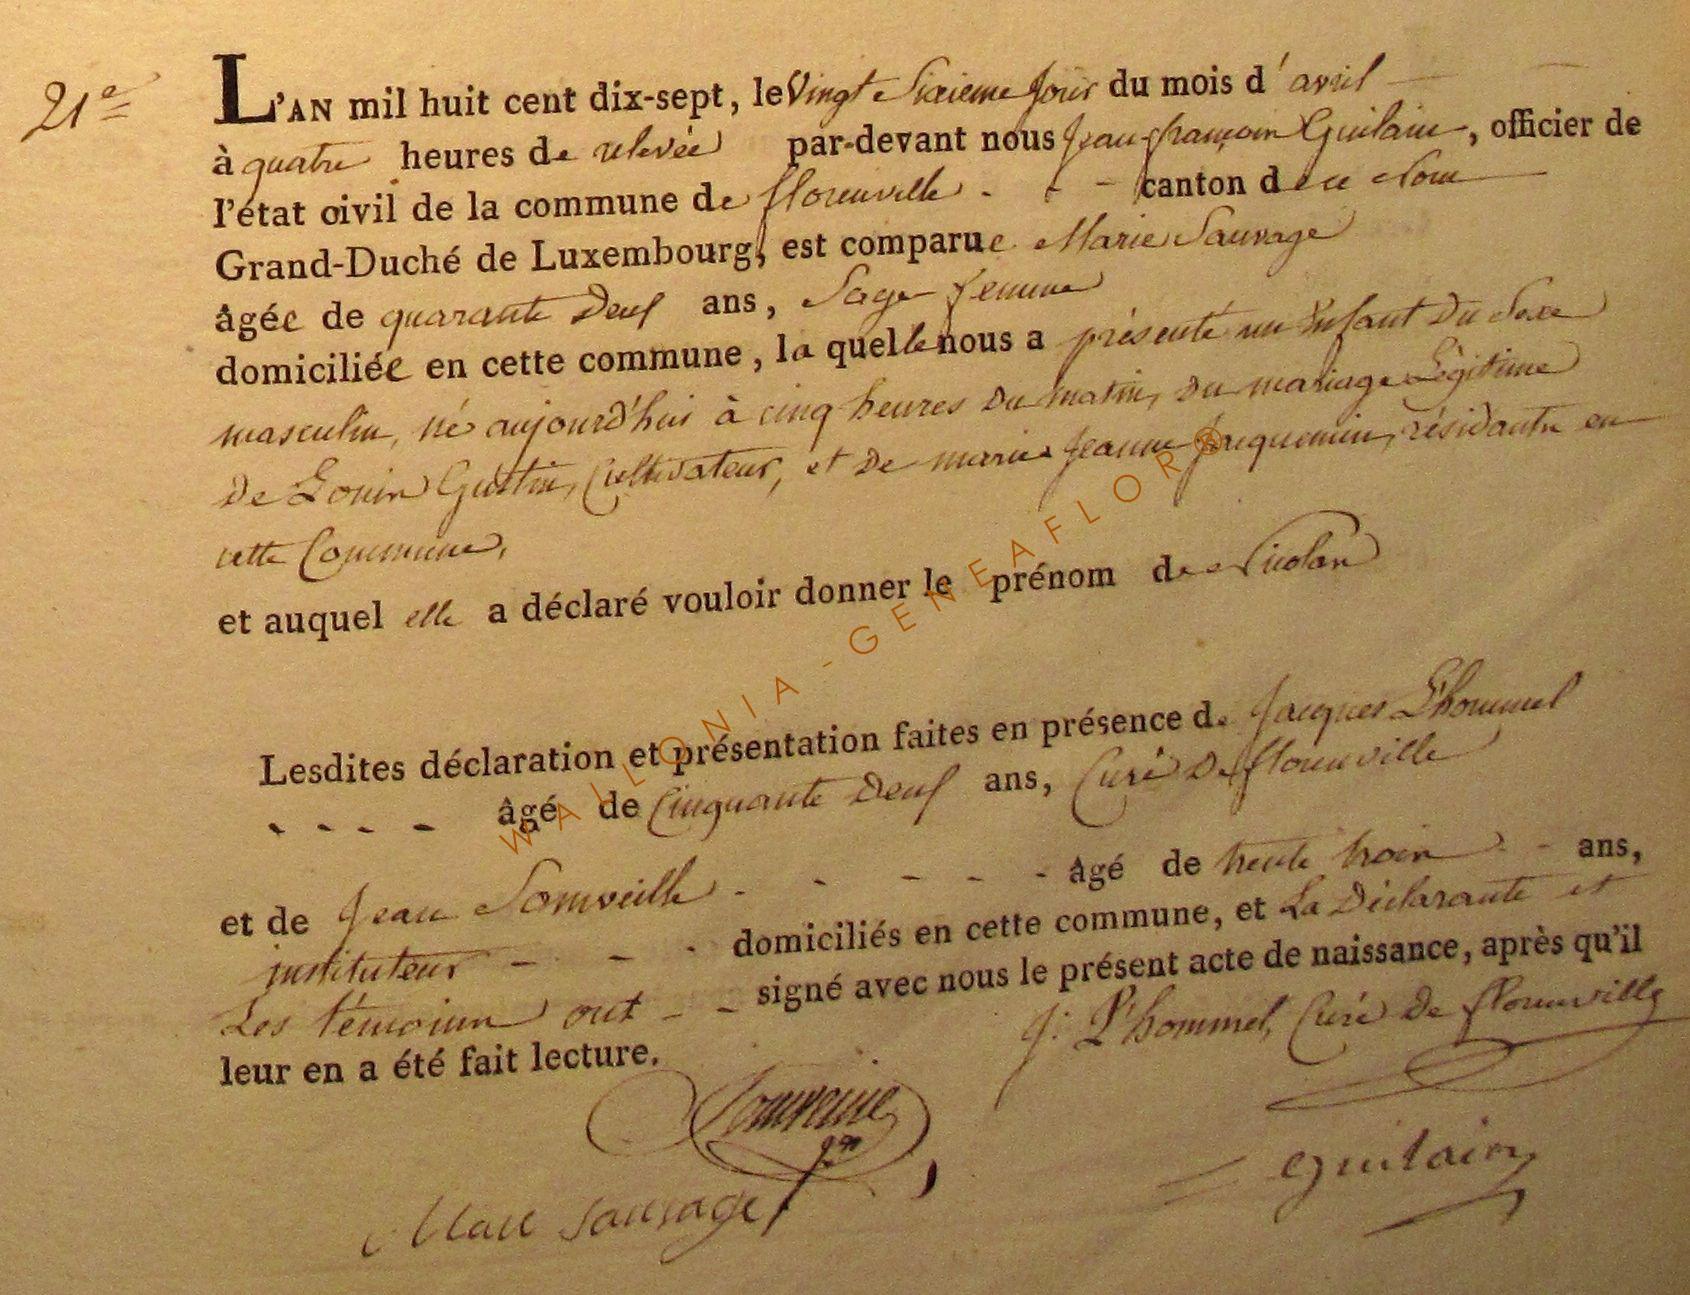 21e
L'AN mil huit cent dix-sept, le Vingt Sixieme Jour du mois d'avril
à quatre heures de relevée par-devant nous Jean françois Guilain, officier de
l'état civil de la commune de florenville - - - canton de ce Nom
Grand-Duché de Luxembourg, est comparue Marie Sauvage
âgée de quarante Deux ans, Sage femme
domiciliée en cette commune, la quelle nous a présenté un Enfant Du Sexe
masculin, né aujourd'hui à cinq heures Du matin, Du mariage Légitime
De Louis Gustin, Cultivateur, et De marie Jeanne jacquemin, résidante en
cette Commune,
et auquel elle a déclaré vouloir donner le prénom de Nicolas
Lesdites déclaration et présentation faites en présence de Jacques L'hommel
- - - - âgé de Cinquante Deux ans, Curé De florenville
et de Jean Somveille - - - - - âgé de trente trois - - ans,
instituteur - - - domiciliés en cette commune, et La Déclarante et
Les témoins ont - - signé avec nous le présent acte de naissance, après qu'il
leur en a été fait lecture.
J: L'hommel, Curé De florenville
Somveille
Guilain
Marie Sauvage
WALLONIA-GENEAFLOR®